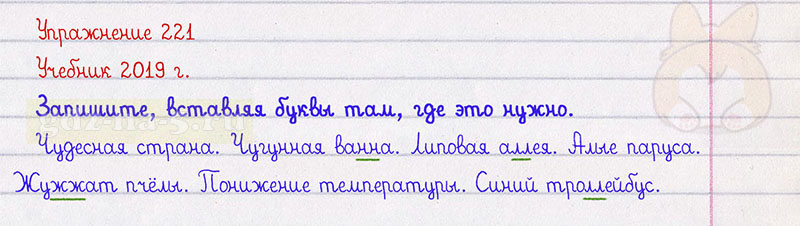 Упражнение 221
Учебник 2019 г.
Запишите, вставляя буквы там, где это нужно.
Чудесная страна. Чугунная ванна. Липовая аллея. Алые паруса.
Жужжат пчёлы. Понижение температуры. Синий троллейбус.